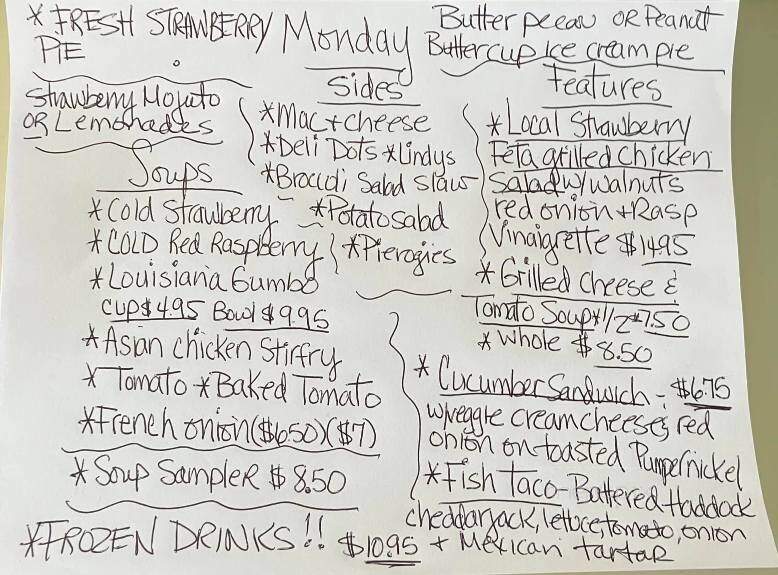 * FRESH STRAWBERRY PIE
Monday
Butter pecan OR Peanut
Buttercup Ice cream pie
Strawberry Mojito
OR Lemonades
Soups
* Cold Strawberry
* COLD Red Raspberry
* Louisiana Gumbo
cup $4.95 Bowl $9.95
* Asian chicken Stirfry
* Tomato * Baked Tomato
* French onion ($6.50) ($7)
* Soup Sampler $8.50
* FROZEN DRINKS!!
Sides
* Mac + cheese
* Deli Dots * Lindys
* Broccoli Salad Slaw
* Potato salad
* Pierogies
Features
* Local Strawberry
Feta grilled Chicken
Salad w/ walnuts
red onion + Rasp
Vinaigrette $14.95
* Grilled Cheese &
Tomato Soup * 1/2 * 7.50
* Whole $8.50
* Cucumber Sandwich - $6.75
w/veggie cream cheese, red
onion on toasted Pumpernickel
* Fish Taco - Battered Haddock
cheddarjack, lettuce, tomato, onion
$10.95 + Mexican tartar